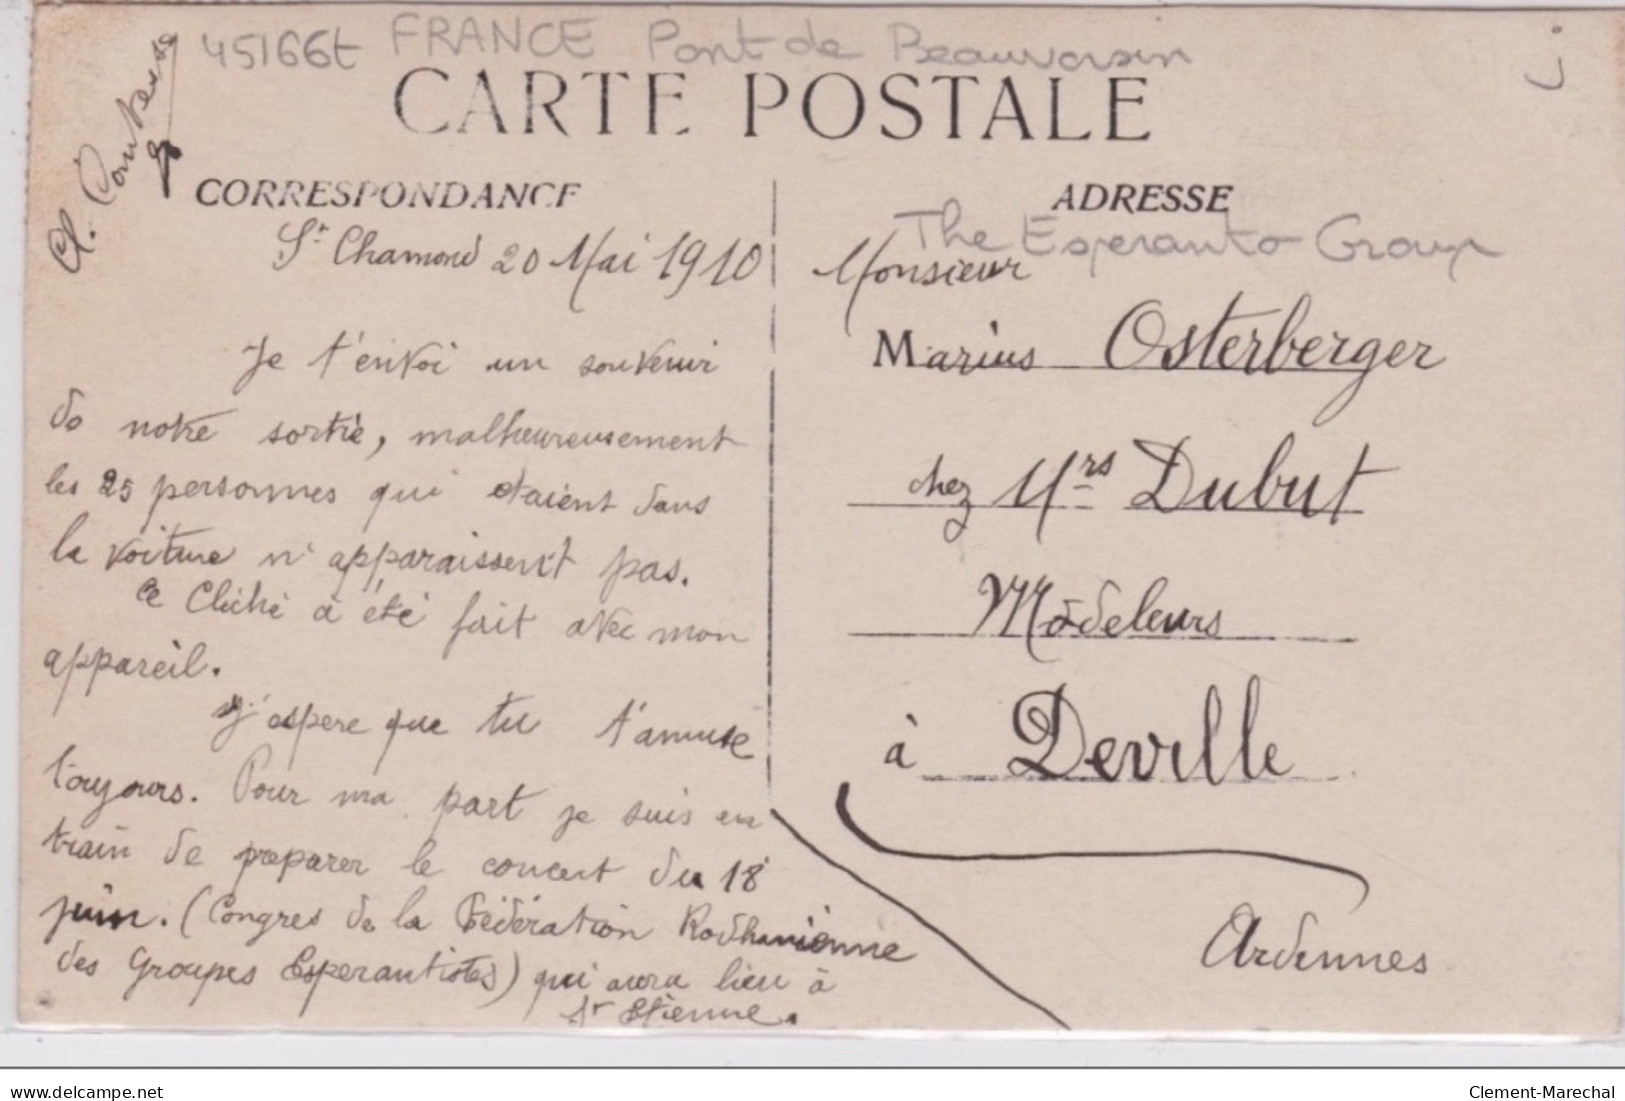 45166t FRANCE Pont de Beauvoisin
j
CARTE POSTALE
Cl. Contesse
CORRESPONDANCE
ADRESSE
The Esperanto Group
St Chamond 20 Mai 1910
Je t'envoi un souvenir
de notre sortie, malheureusement
les 25 personnes qui etaient dans
la voiture n'apparaissent pas.
Ce Cliché à été fait avec mon
appareil.
J'espere que tu t'amuse
toujours. Pour ma part je suis en
train de preparer le concert du 18
juin. (Congres de la Fédération Rodhanienne
des Groupes Esperantistes) qui aura lieu à
St Etienne.
Monsieur
Marius Osterberger
chez Mrs Dubut
Modeleurs
à Deville
Ardennes
www.delcampe.net
Clement-Marechal